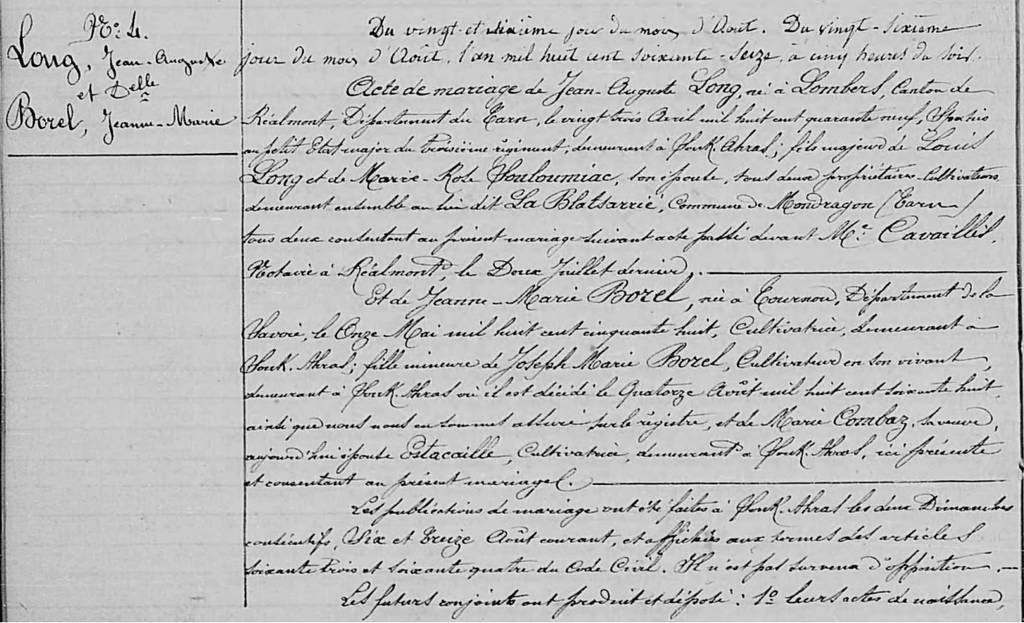 N°: 4.
Long, Jean-Auguste
et Delle
Borel, Jeanne-Marie
Du vingt et sixième jour du mois d'Août. Du vingt-sixième
jour du mois d'Août, l'an mil huit cent soixante-seize, à cinq heures du soir.
Acte de mariage de Jean-Auguste Long, né à Lombers, Canton de
Réalmont, Département du Tarn, le vingt trois Avril mil huit cent quarante neuf, Spahis
au petit Etat-major du troisième régiment, demeurant à Souk-Ahras; fils majeur de Louis
Long et de Marie-Rose Souloumiac, son épouse, tous deux propriétaires-Cultivateurs,
demeurant ensemble au lieu dit La Blatsarrié, Commune de Mondragon (Tarn)
tous deux consentent au présent mariage suivant acte passé devant Me. Cavaillès,
Notaire à Réalmont, le Doux Juillet dernier,
Et de Jeanne-Marie Borel, née à Tournou, Département de la
Savoie, le Onze Mai mil huit cent cinquante huit, Cultivatrice, demeurant à
Souk-Ahras; fille mineure de Joseph Marie Borel, Cultivateur en son vivant,
demeurant à Souk-Ahras où il est décédé le Quatorze Août mil huit cent soixante huit,
ainsi que nous nous en sommes assuré sur le régistre, et de Marie Combaz, sa veuve,
aujourd'hui épouse Estacaille, Cultivatrice, demeurant à Souk-Ahras, ici présente
et consentant au présent mariage.
Les publications de mariage ont été faites à Souk-Ahras les deux Dimanches
consécutifs, Six et Treize Août courant, et affichées aux termes des articles
soixante trois et soixante quatre du Code Civil. Il n'est pas survenu d'opposition.
Les futurs conjoints ont produit et déposé: 1° leurs actes de naissance,